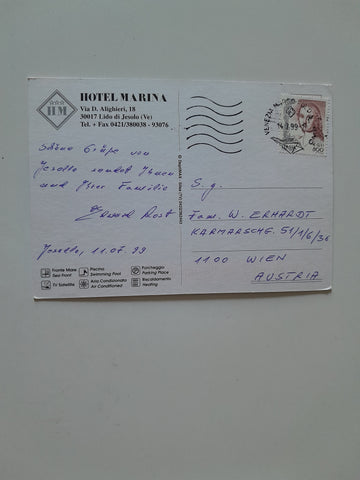 HM
HOTEL MARINA
Via D. Alighieri, 18
30017 Lido di Jesolo (Ve)
Tel. + Fax 0421/380038 - 93076
Schöne Grüße von
Jesollo sendet Ihnen
und Ihrer Familie
Jesollo, 11.07.99
Fronte Mare
Sea Front
Piscina
Swimming Pool
Parcheggio
Parking Place
TV Satellite
Aria Condizionata
Air Conditioned
Riscaldamento
Heating
VENEZIA
99
800
S.g.
Fam. W. ERHARDT
KARMARSCHG. 51/1/6/36
1100 WIEN
AUSTRIA